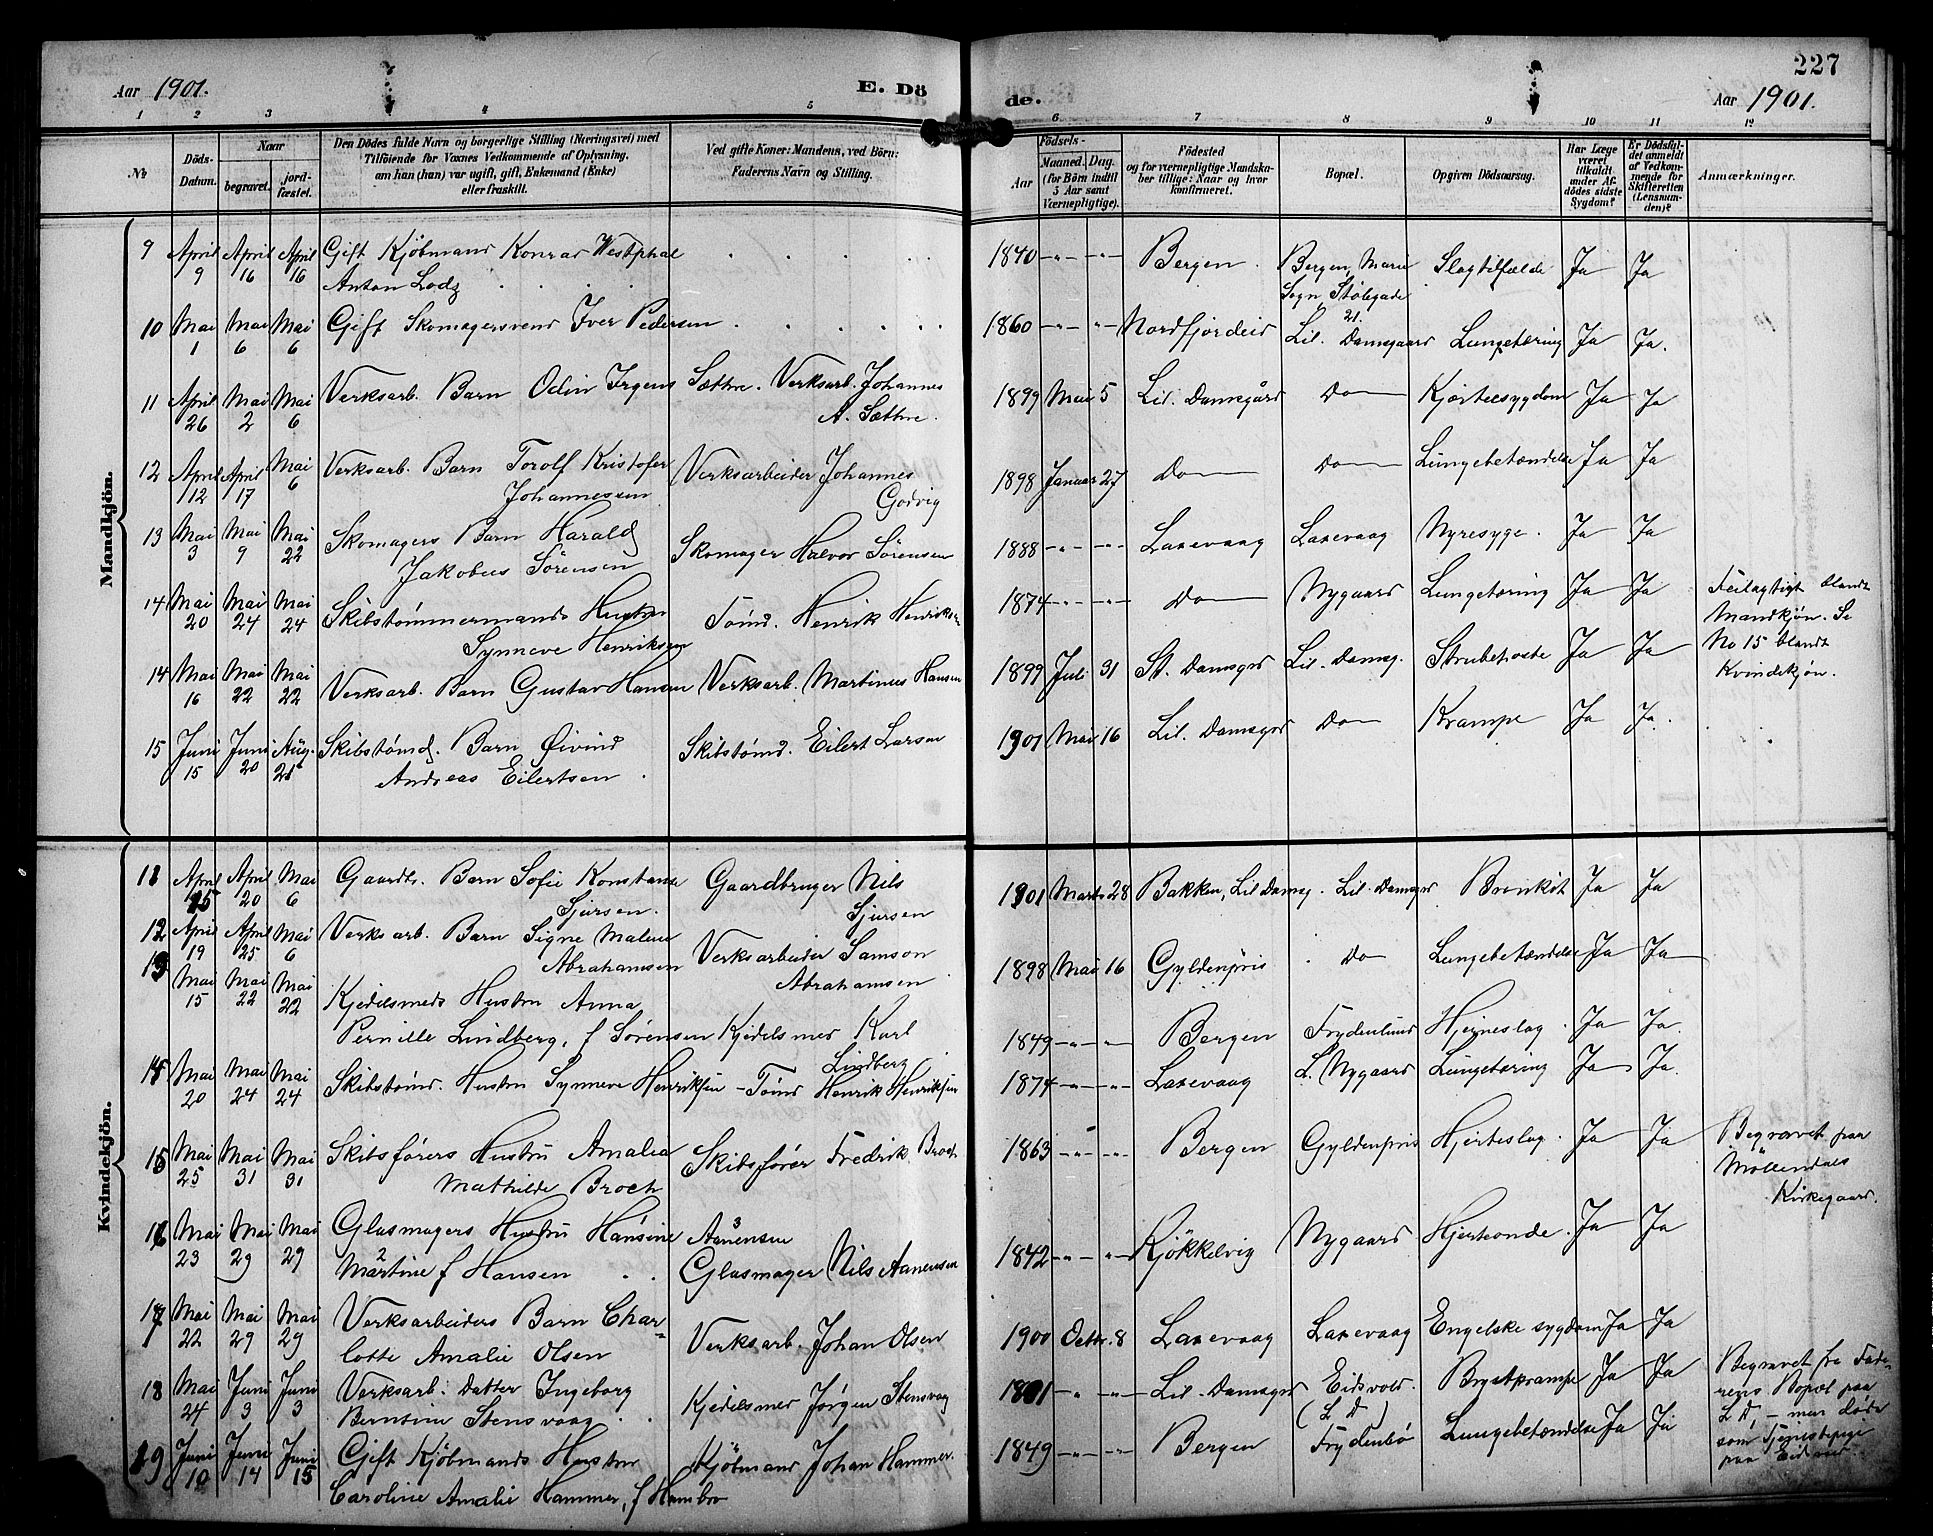 227
Aar 1901. E. Dö de. Aar 1901.
1 2 3 4 5 6 7 8 9 10 11 12
№ Döds-Datum. Naar begravet. jord-fæstet. Den Dödes fulde Navn og borgerlige Stilling (Næringsvei) med Tilföiende for Voxnes Vedkommende af Oplysning, om han (hun) var ugift, gift, Enkemand (Enke) eller fraskilt. Ved gifte Koner: Mandens, ved Börn: Faderens Navn og Stilling. Födsels- Aar Maaned. Dag. (for Börn indtil 5 Aar samt Værnepligtige). Födested og for værnepligtige Mandska-ber tillige: Naar og hvor konfirmeret. Bopæl. Opgiven Dödsaarsag. Har Læge været tilkaldt under Af-dödes sidste Sygdom? Er Dödsfal-det anmeldt af Vedkom-mende for Skifteretten (Lensman-den)? Anmærkninger.
Mandkjön.
9 April 9 April 16 April 16 Gift Kjöbmand Konrad Westphal
Anton Lodz . . . . 1840 -"- -"- Bergen. Bergen, Marie Sogn, Stølegade 21. Slagtilfælde Ja Ja
10 Mai 1 Mai 6 Mai 6 Gift Skomagersvend Iver Pedersen . . . . 1860 -"- -"- Nordfjordeid Lil. Damsgaard Lungetæring Ja Ja.
11 April 26 Mai 2 Mai 6 Verksarb. Barn Odin Irgens Sættre. Verksarb. Johannes
A. Sættre. 1899 Mai 5 Lil. Damsgård Do Kjertelsygdom Ja Ja
12 April 12 April 17 Mai 6 Verksarb. Barn Torolf Kristofer
Johannessen Verksarbeider Johannes
Godvig 1898 Januar 27 Do Do Lungebetændelse Ja Ja
13 Mai 3 Mai 9 Mai 22 Skomagers Barn Harald
Jakobus Sörensen Skomager Halvor Sörensen 1888 -"- -"- Laxevaag Laxevaag Nyresyge. Ja Ja
14 Mai 20 Mai 24 Mai 24 Skibstømmermands Hustru
Synneve Henriksen Tømd. Henrik Henriksen 1874 -"- -"- Do Nygaard Lungetæring Ja Ja Feilagtigt blandt
Mandkjön. Se
No 15 blandt
Kvindekjön.
14 Mai 16 Mai 22 Mai 22 Verksarb. Barn Gustav Hansen Verksarb. Martinus Hansen 1899 Juli 31 St. Damsgrd Lil. Damsg. Strubehoste Ja Ja
15 Juni 15 Juni 20 Aug. 21 Skibstømd. Barn Øivind
Andreas Eilertsen Skibstømd. Eilert Larsen 1901 Mai 16 Lil. Damsgrd Do Krampe Ja Ja.
Kvindekjön.
11 April 15 April 20 Mai 6 Gaardb. Barn Sofie Konstanse
Sjursen. Gaardbruger Nils
Sjursen 1901 Marts 28 Bakken, Lil Damsg. Lil. Damsgrd Bronkit Ja Ja
12 April 19 April 25 Mai 6 Verksarb. Barn Signe Malene
Abrahamsen Verksarbeider Samson
Abrahamsen 1898 Mai 16 Gyldenpris Do Lungebetændelse Ja Ja
13 Mai 15 Mai 22 Mai 22 Kjedelsmeds Hustru Anna
Pernille Lindberg, f Sörensen Kjedelsmed Karl
Lindberg 1849 -"- -"- Bergen Frydenlund Hjerneslag. Ja Ja.
Mai 20 Mai 24 Mai 24 Skibstømd. Hustru Synneve Henriksen - Tømd Henrik Henriksen 1874 -"- -"- Laxevaag L. Nygaard Lungetæring Ja Ja.
Mai 25 Mai 31 Mai 31 Skibsförers Hustru Amalia
Mathilde Broch Skibsförer Fredrik Broch 1863 -"- -"- Bergen Gyldenpris Hjerteslag. Ja Ja Begravet paa
Möllendals
Kirkegaard.
Mai 23 Mai 29 Mai 29 Glasmagers Hustru Hansine
Martine f Hansen Aanensen
Glasmager Nils Aanensen 1842 -"- -"- Kjökkelvig Nygaard Hjerteonde. Ja Ja
17 Mai 22 Mai 29 Mai 29 Verksarbeiders Barn Char-
lotte Amalie Olsen Verksarb. Johan Olsen 1900 Octbr. 8 Laxevaag Laxevaag Engelske sygdom Ja Ja
18 Mai 24 Juni 3 Juni 3 Verksarb. Datter Ingeborg
Berntine Stensvaag . . Kjedelsmed Jørgen Stensvaag -"- -"- Lil. Damsgrd Eidsvold. (L D) Brystkrampe Ja Ja Begravet fra Fade-
rens Bopæl paa
L D, - men döde
som Tjenestepige
paa
19 Juni 10 Juni 14 Juni 15 Gift Kjöbmands Hustru
Caroline Amalie Hammer, f Hambro Kjöbmand Johan Hammer. 1849 -"- -"- Bergen Frydenbø Lungebetændelse Ja Ja